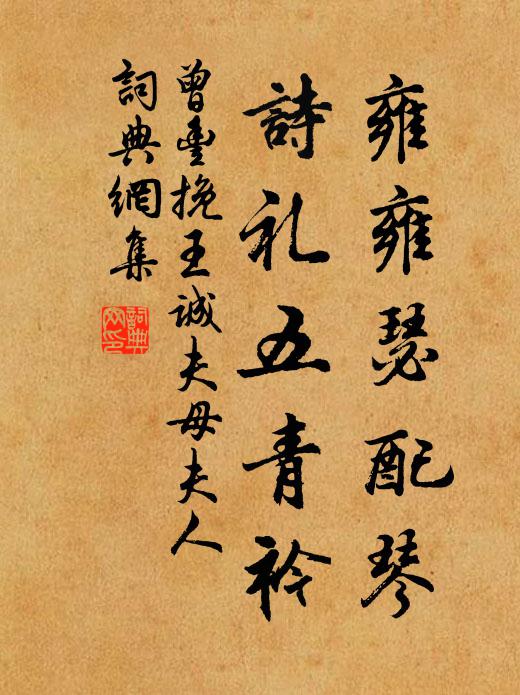 雍雍瑟配琴
詩礼五青衿
曾豊挽王誠夫母夫人
詞典網集
詞典
网印